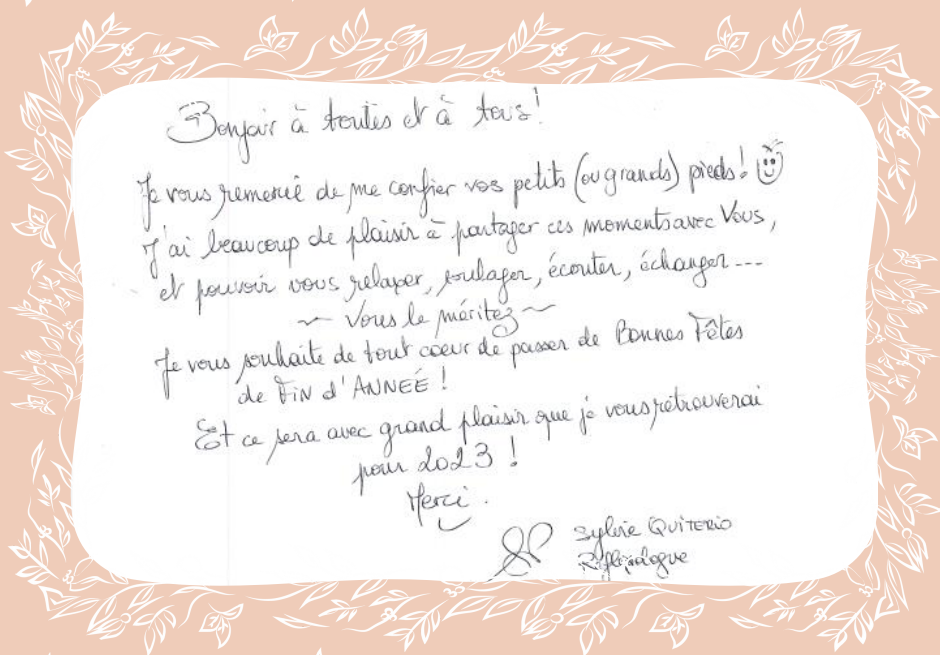 Bonjour à toutes et à tous!
Je vous remercie de me confier vos petits (ou grands) pieds!
J'ai beaucoup de plaisir à partager ces moments avec Vous,
et pouvoir vous relaxer, soulager, écouter, échanger ---
~ Vous le méritez ~
Je vous souhaite de tout coeur de passer de Bonnes Fêtes
de FiN d'ANNEÉ !
Et ce sera avec grand plaisir que je vous retrouverai
pour 2023 !
Merci.
Sylvie QUITERIO
Réflexologue